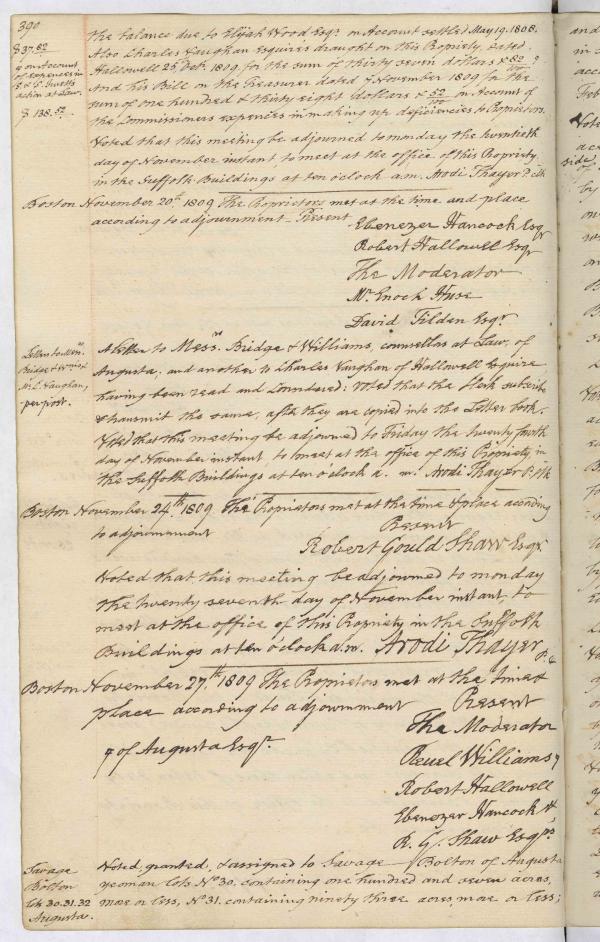 390
The balance due to Elijah Wood Esqr. on Account settled May 19. 1808.
$37.82
Also Charles Vaughan Esquires draught on this Propriety, dated
Hallowell 25, Octr. 1809. for the sum of thirty seven dollars & 82/100
on Account
of expences in
action at Law.
And his Bill on the Treasurer dated 4 November 1809 for the
$ 138.52
sum of one hundred & thirty eight dollars & 52/100 on Account of
the Commissioners expences in making up deficiencies to Proprietors.
Voted that this meeting be adjourned to monday the twentieth
day of November instant, to meet at the office of this Propriety
in the Suffolk Buildings at ten oClock a.m. Arodi Thayer P. Clk
Boston November 20th. 1809 The Proprietors met at the time and place
according to adjournment – Present
Ebenezer Hancock Esqr
Robert Hallowell Esqr
The Moderator
Mr. Enoch Huse
David Tilden Esqr.
Letters to Messrs.
Bridge & Wms. &
Mr. C. Vaughan,
per post.
A letter to Messrs. Bridge & Williams, counsellas at Law, of
Augusta; and another to Charles Vaughan of Hallowell Esquire
having been read and considered; Voted that the Clerk subscribe
& transmit the same, after they are copied into the Letter book.
Voted that this meeting be adjourned to Friday the twenty fourth
day of November instant to meet at the office of this Propriety in
the Suffolk Buildings at ten o'clock a. m. Arodi Thayer P. Clk
Boston November 24.th 1809 The Proprietors met at the time & place according
to adjournment
Present
Robert Gould Shaw Esqr.
Voted that this meeting be adjourned to monday
the twenty seventh day of November instant, to
meet at the office of this Propriety in the Suffolk
Buildings at ten o'clock a.m. Arodi Thayer
P. C.
Boston November 27.th 1809 The Proprietors met at the time &
place according to adjournment
Present
The Moderator
of Augusta Esqr.
Reuel Williams
Robert Hallowell
Ebenezer Hancock &
R. G. Shaw Esqrs
Savage
Bolton
lots 30.31.32
Augusta.
Voted, granted, & assigned to Savage Bolton of Augusta
yeoman lots No. 30, containing one hundred and seven acres,
more or less, No. 31, containing ninety three acres more or less;